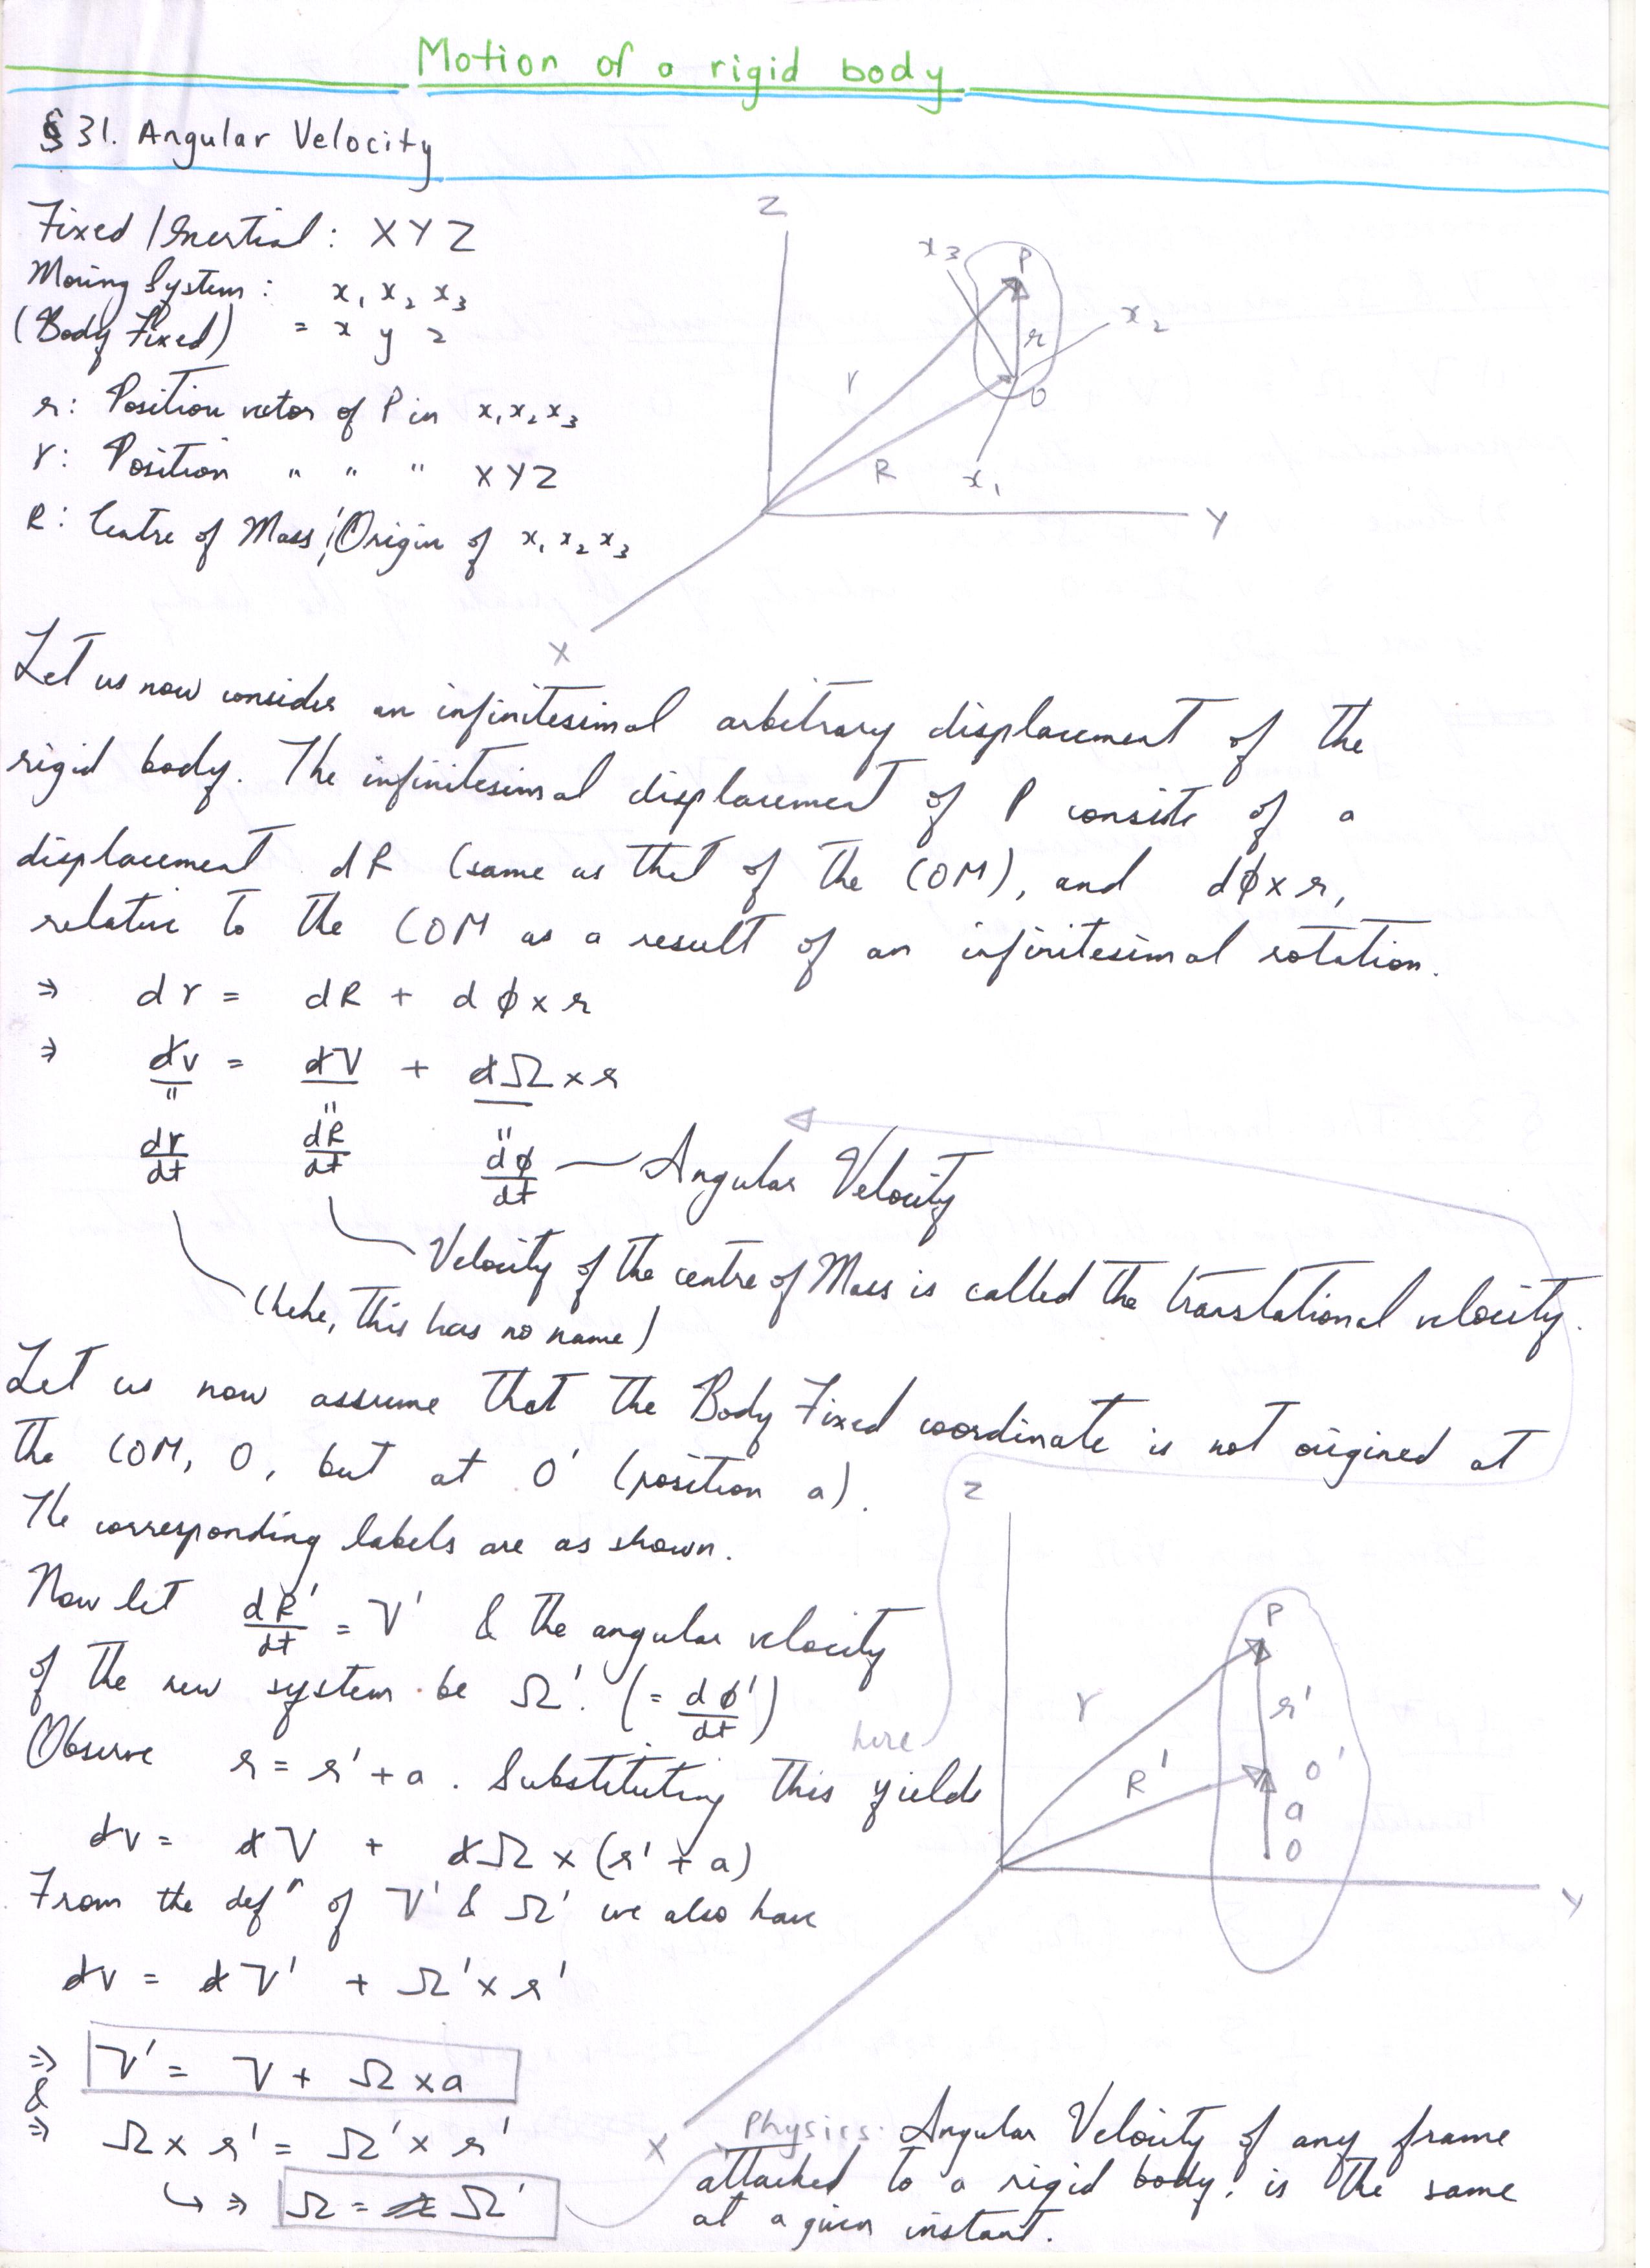 Motion of a rigid body
§ 31. Angular Velocity
Fixed / Inertial : X Y Z
Moving System : x₁ x₂ x₃
(Body Fixed) = x y z
r : Position vector of P in x₁ x₂ x₃
γ : Position " " " X Y Z
R : Centre of Mass ; Origin of x₁ x₂ x₃
Z
x₃
P
x₂
r
γ
O
R
x₁
Y
X
Let us now consider an infinitesimal arbitrary displacement of the
rigid body. The infinitesimal displacement of P consists of a
displacement dR (same as that of the COM), and dϕ × r,
relative to the COM as a result of an infinitesimal rotation.
⇒ dγ = dR + dϕ × r
⇒ dv = dV + dΩ × r
" " "
dγ/dt dR/dt dϕ/dt — Angular Velocity
Velocity of the centre of Mass is called the translational velocity.
(hehe, this has no name)
Let us now assume that the Body Fixed coordinate is not origined at
the COM, O, but at O' (position a).
The corresponding labels are as shown.
Now let dR'/dt = V' & the angular velocity
of the new system be Ω'. (= dϕ'/dt)
here
Observe r = r' + a . Substituting this yields
dv = dV + dΩ × (r' + a)
From the defⁿ of V' & Ω' we also have
dv = dV' + Ω' × r'
⇒ V' = V + Ω × a
&
⇒ Ω × r' = Ω' × r'
↪ ⇒ Ω = Ω'
Z
P
γ
r'
R'
O'
a
O
Y
X
Physics: Angular Velocity of any frame
attached to a rigid body, is the same
at a given instant.